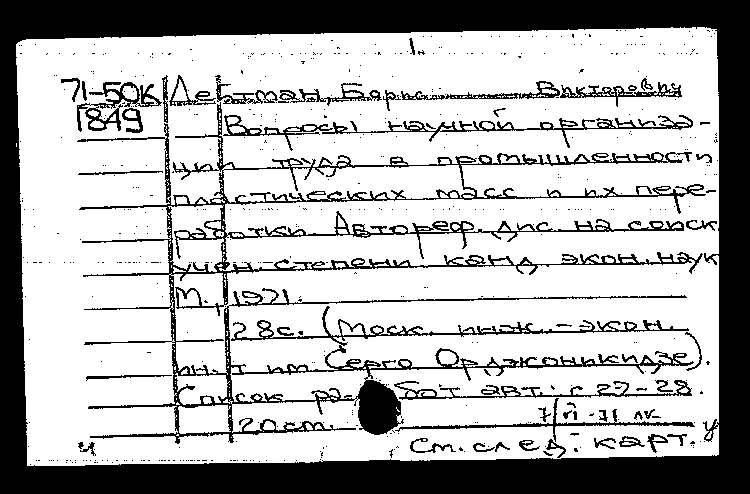 1.
71-50К Лейтман, Борис Викторович
1849 Вопросы научной организа-
ции труда в промышленности
пластических масс и их пере-
работки. Автореф. дис. на соиск.
учен. степени канд. экон. наук
М., 1971.
28с. (Моск. инж.-экон.
ин-т им. Серго Орджоникидзе).
Список работ авт.: с. 27-28.
20 см.
См. след. карт.